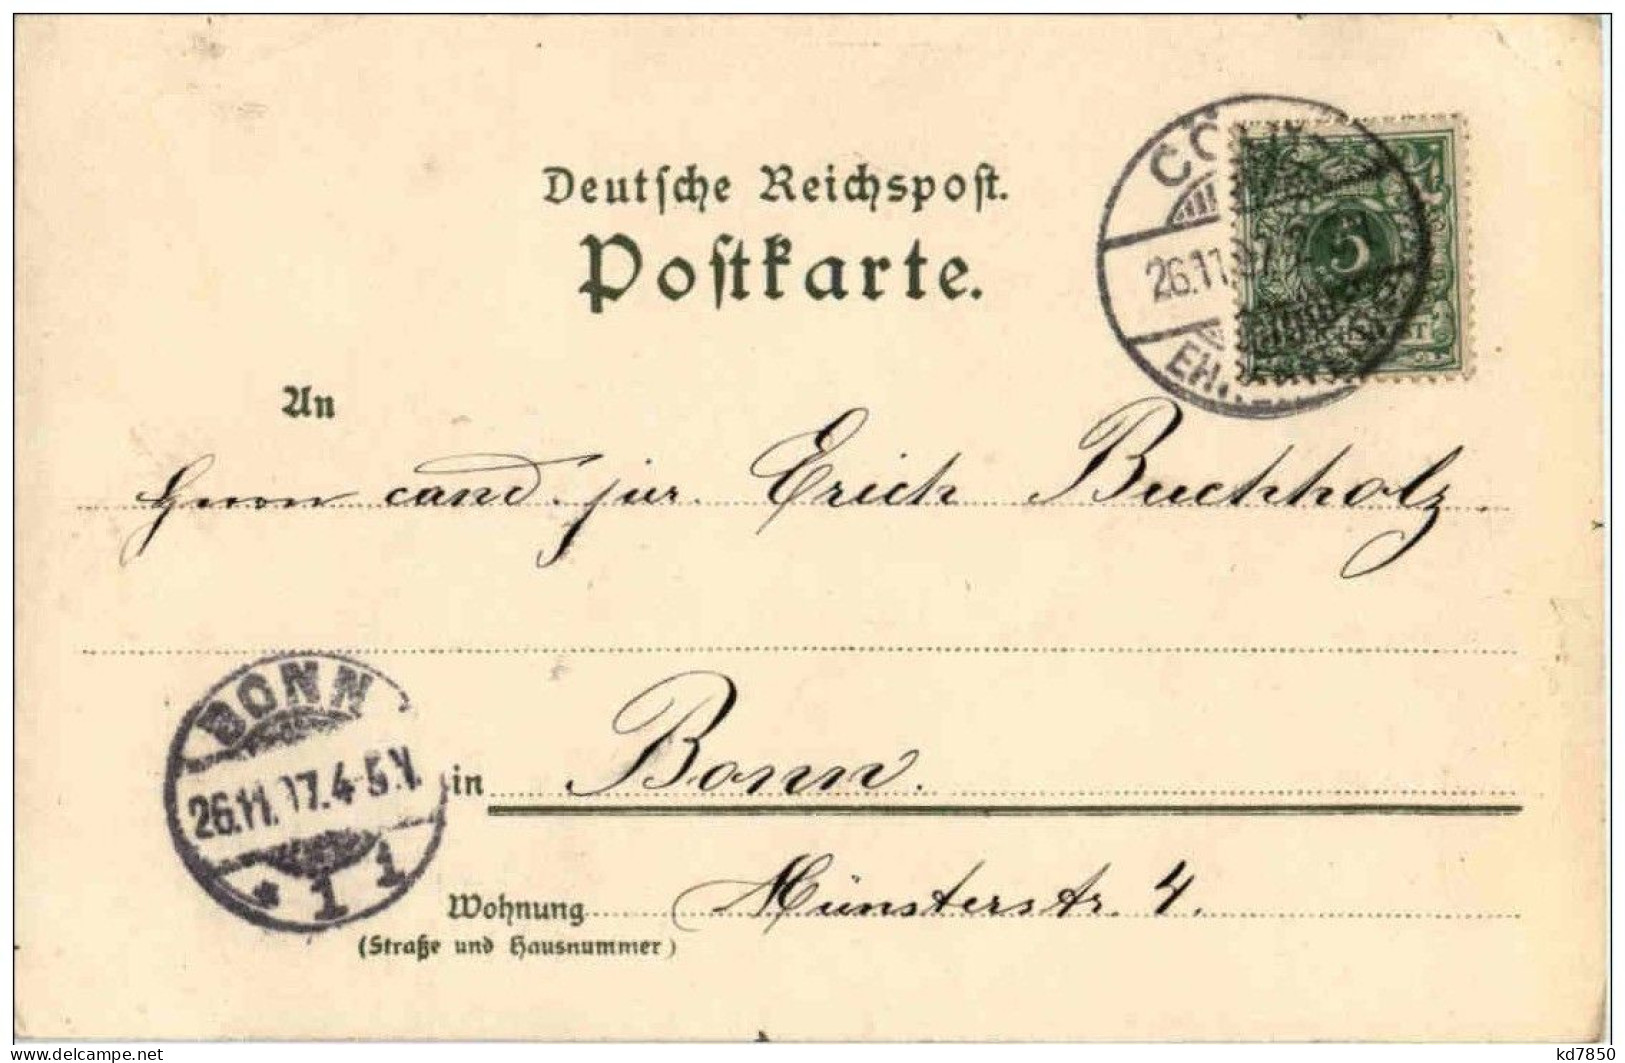 Deutsche Reichspost.
Postkarte.
CÖLN
26.11.97. 2
EH
5
An
Herrn cand. jur. Erich Buchholz.
BONN
26.11.97. 4-5 N.
* 1 1
in Bonn.
Wohnung Münsterstr. 4.
(Straße und Hausnummer)
www.delcampe.net
kd7850